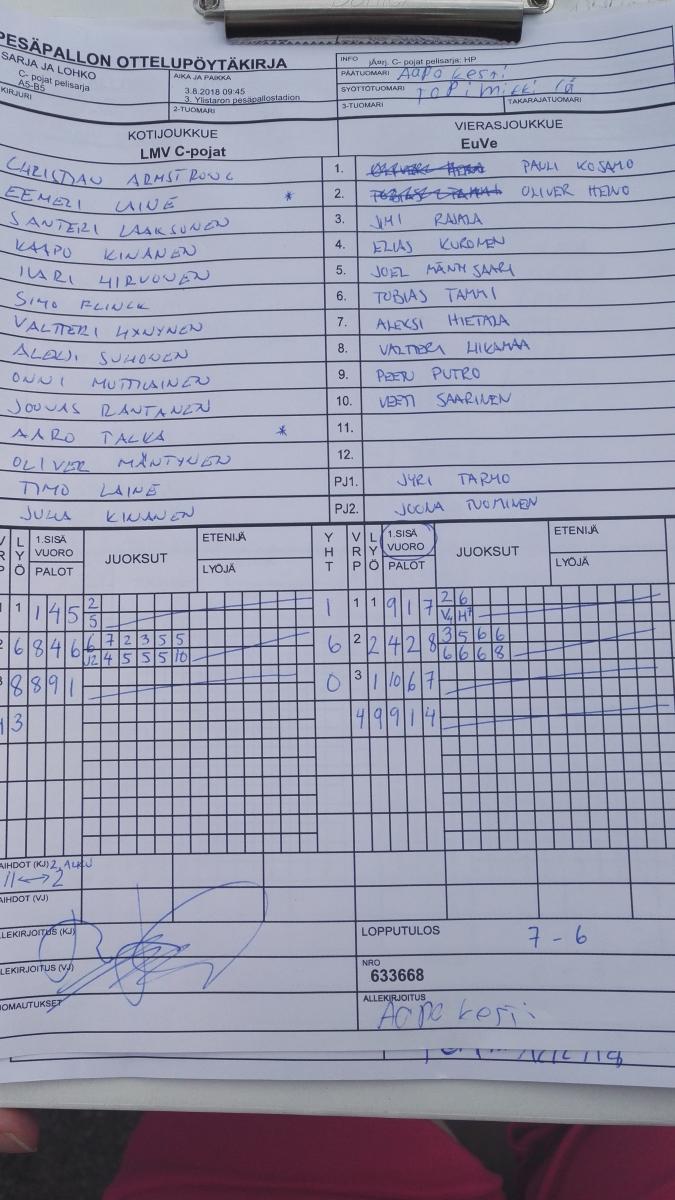 PESÄPALLON OTTELUPÖYTÄKIRJA
SARJA JA LOHKO
C- pojat pelisarja
A5-B5
KIRJURI
AIKA JA PAIKKA
3.8.2018 09:45
3. Ylistaron pesäpallostadion
2-TUOMARI
INFO jÄarj. C- pojat pelisarja: HP
PÄÄTUOMARI Aapo Kesti
SYÖTTÖTUOMARI Topi
3-TUOMARI TAKARAJATUOMARI
KOTIJOUKKUE VIERASJOUKKUE
LMV C-pojat EuVe
CHRISTIAN ARMSTRONG 1. PAULI KOSAMO
EEMELI LAINE * 2. OLIVER HEINO
SANTERI LAAKSONEN 3. JIMI RAJALA
KAAPO KINANEN 4. ELIAS KURONEN
ILARI HIRVONEN 5. JOEL MÄNNISAARI
SIMO FLINCK 6. TOBIAS TAMMI
VALTTERI HYNYNEN 7. ALEKSI HIETALA
ALEKSI SUHONEN 8. VALTTERI
ONNI MUTTILAINEN 9. PEEN PUTRO
JOONAS RANTANEN 10. VEETI SAARINEN
AARO TALKA * 11.
OLIVER MÄNTYNEN 12.
TIMO LAINE PJ1. JYRI TARMO
JUHA KINANEN PJ2. JOONA TUOMINEN
VRP LYÖ 1.SISÄ VUORO PALOT JUOKSUT ETENIJÄ LYÖJÄ YHT VRP LYÖ 1.SISÄ VUORO PALOT JUOKSUT ETENIJÄ LYÖJÄ
1 1 1 4 5 2 1 1 1 9 1 7 2 6
5 V4 H7
2 6 8 4 6 6 7 2 3 5 5 6 2 2 4 2 8 3 5 6 6
J2 4 5 5 5 10 6 6 6 8
3 8 8 9 1 0 3 1 10 6 7
4 3 4 9 9 1 4
AIHDOT (KJ) 2. ALKU
11 ↔ 2
AIHDOT (VJ)
LLEKIRJOITUS (KJ) LOPPUTULOS 7 - 6
LLEKIRJOITUS (VJ) NRO
633668
OMAUTUKSET ALLEKIRJOITUS
Aapo Kesti